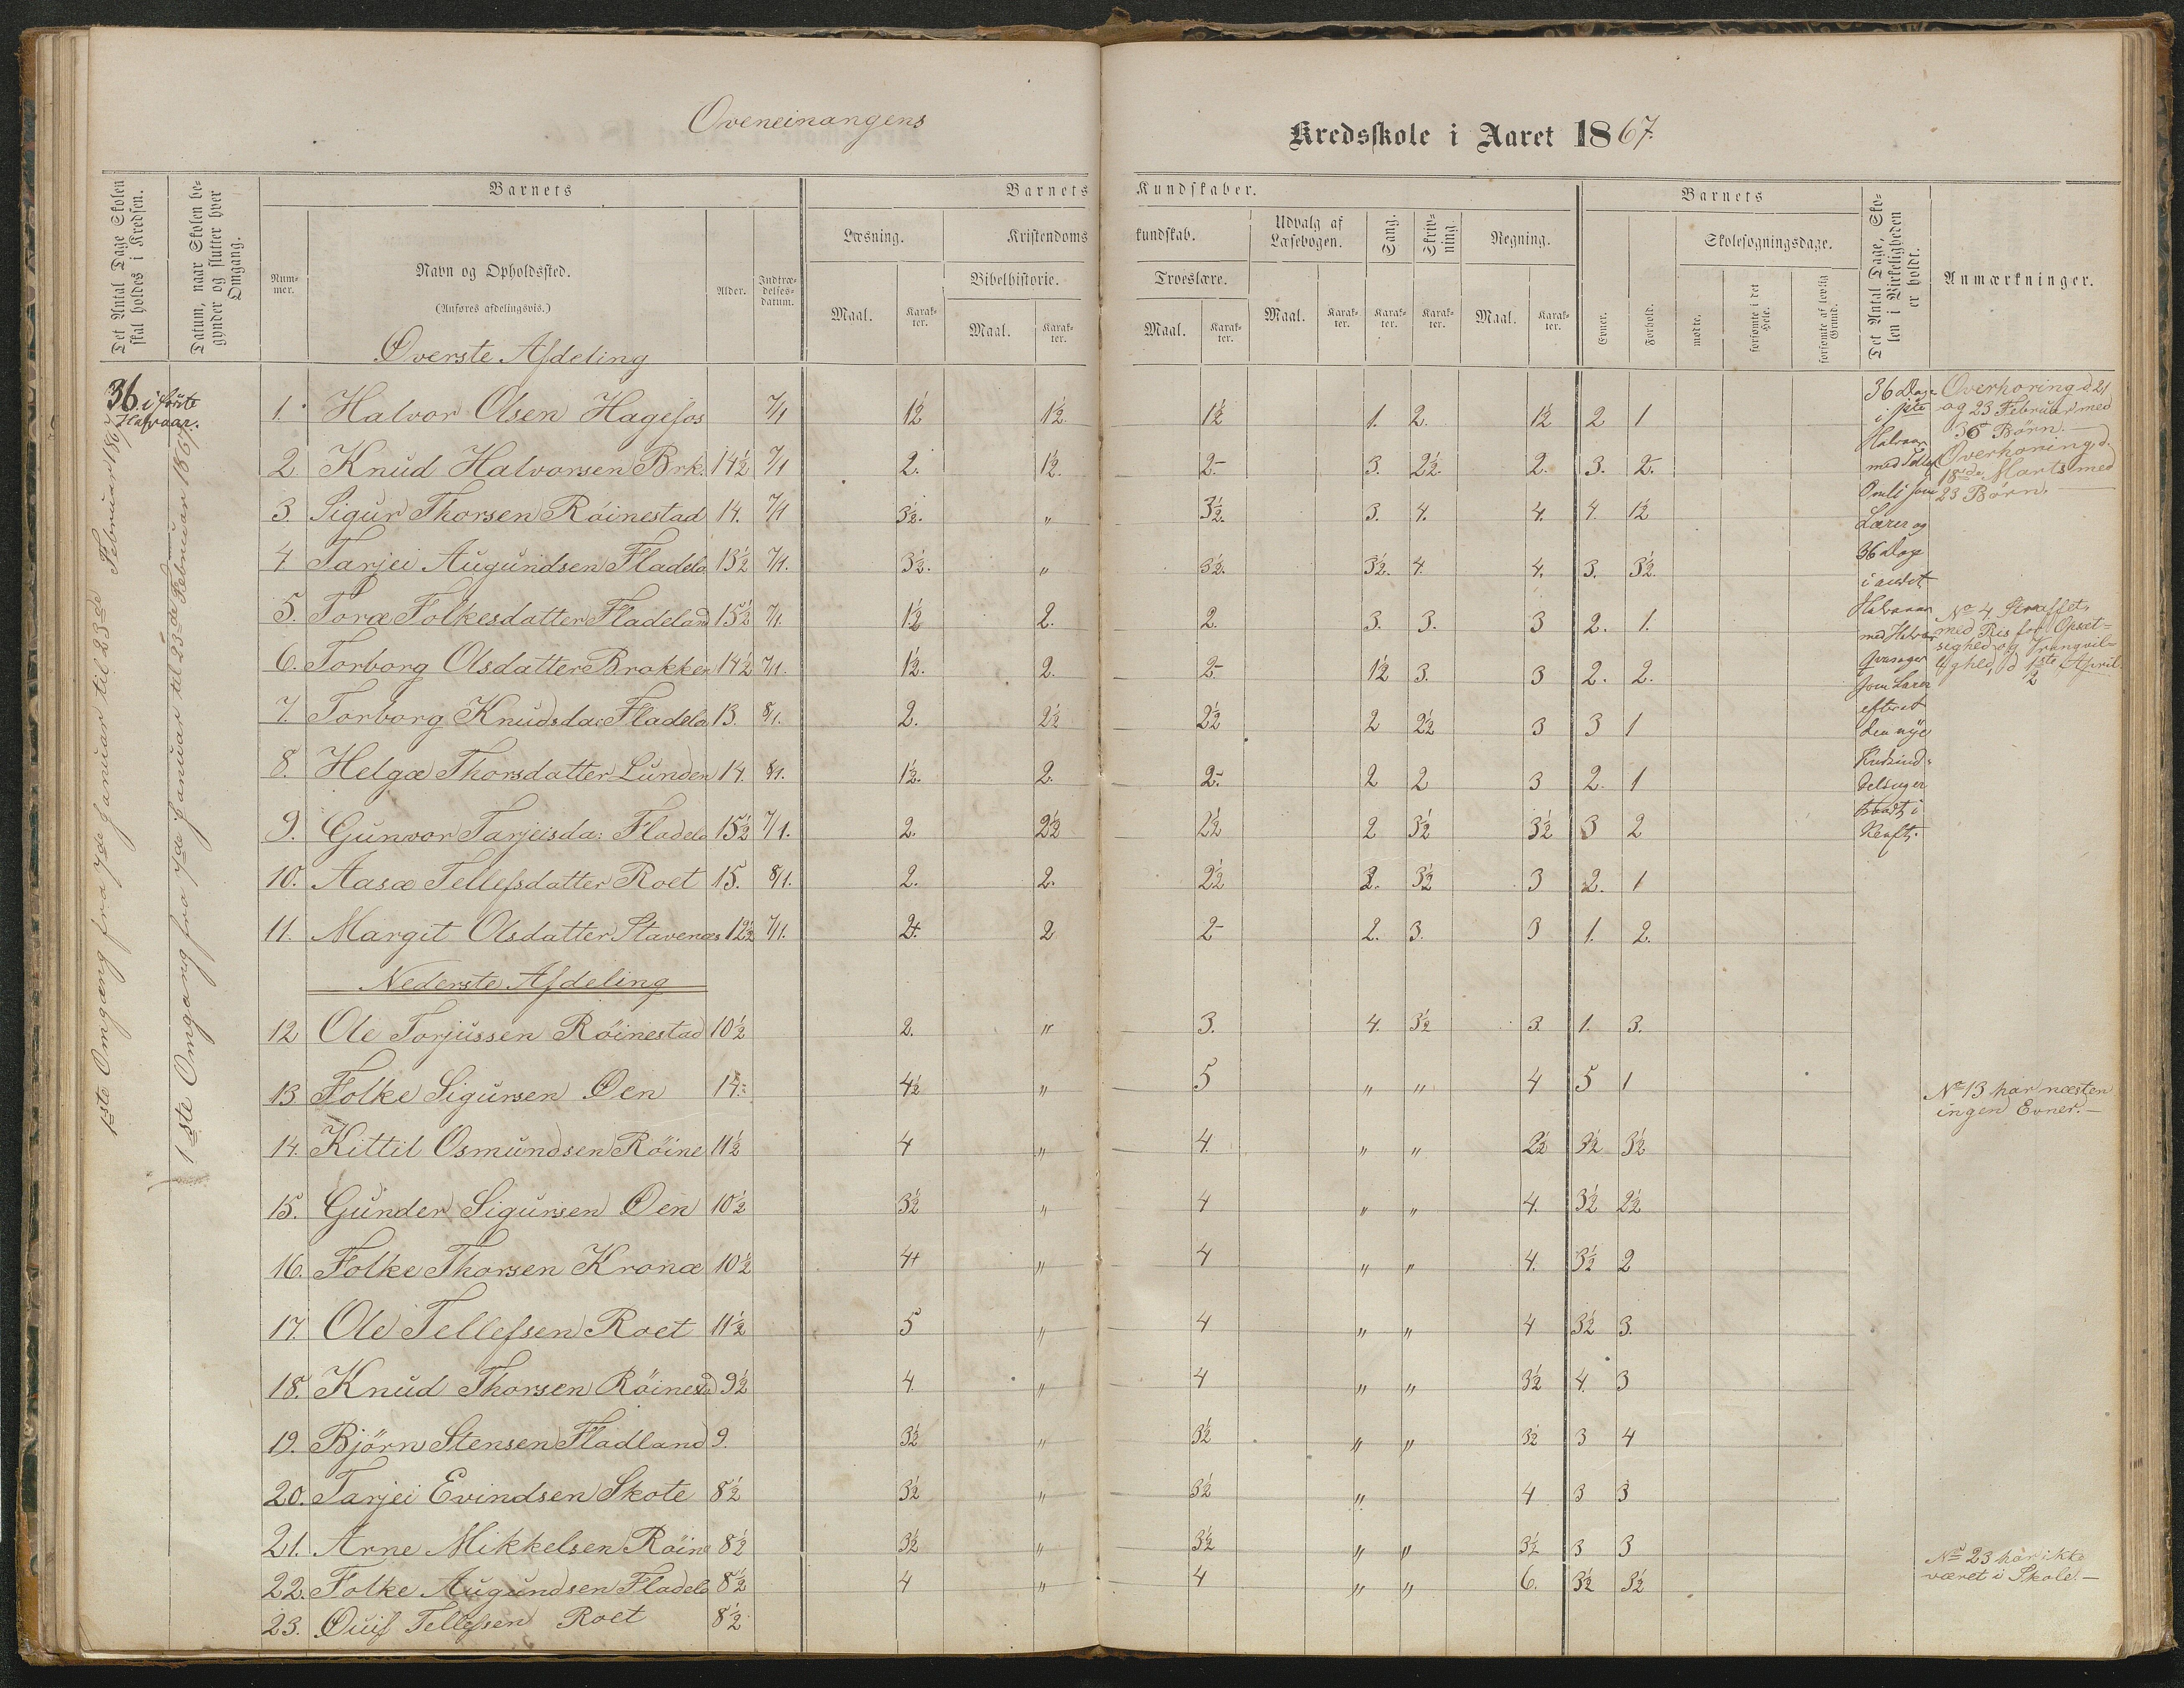 Oveneinangens
Kredsskole i Aaret 1867.
Det Antal Dage Skolen skal holdes i Kredsen.
Datum, naar Skolen begynder og slutter hver Omgang.
Barnets
Nummer.
Navn og Opholdssted.
(Anføres afdelingsvis.)
Alder.
Indtrædelsesdatum.
Barnets Kundskaber.
Læsning.
Maal.
Karakter.
Kristendomskundskab.
Bibelhistorie.
Maal.
Karakter.
Troeslære.
Maal.
Karakter.
Udvalg af Læsebogen.
Maal.
Karakter.
Sang.
Karakter.
Skrivning.
Karakter.
Regning.
Maal.
Karakter.
Barnets
Evner.
Forhold.
Skolesøgningsdage.
mødte.
forsømte i det Hele.
forsømte af lovlig Grund.
Det Antal Dage, Skolen i Virkeligheden er holdt.
Anmærkninger.
36 i første
Halvaar.
1ste Omgang fra 7de Januar til 23de Februar 1867
1ste Omgang fra 7de Januar til 23de Februar 1867.
Øverste Afdeling
1. Halvor Olsen Hagefos 7/1 1½ 1½ 1½ 1. 2. 1½ 2 1
2 Knud Halvorsen Brk. 14½ 7/1 2. 1½ 2- 3. 2½. 2. 3. 2.
3. Sigur Thorsen Röinestad 14. 7/1 3½. " 3½. 3. 4. 4. 4. 1½
4. Tarjei Augundsen Fladela 13½ 7/1. 3½. " 3½. 3½. 4. 4. 3. 3½.
5. Toræ Folkesdatter Fladeland 15½ 7/1. 1½ 2. 2. 3. 3. 3 2. 1.
6. Torborg Olsdatter Brokken 14½ 7/1. 1½. 2. 2- 1½ 3. 3 2. 2.
7. Torborg Knudsda: Fladela 13. 8/1. 2. 2½ 2½ 2 2½ 3 3 1
8. Helgæ Thorsdatter Lunden 14. 8/1. 1½. 2. 2- 2 2 3 2. 1
9. Gunvor Tarjeisda: Fladela 15½ 7/1. 2. 2½ 2½ 2 3½ 3½ 3 2
10. Aasæ Tellefsdatter Roet 15. 8/1. 2. 2. 2½ 2. 3½ 3 2. 1
11. Margit Olsdatter Stavenæs 12½ 7/1. 2+. 2 2- 2. 3. 3 1. 2.
Nederste Afdeling
12 Ole Torjussen Röinestad 10½ 2. " 3. 4. 3½ 3. 1. 3.
13 Folke Sigursen Øen 14. 4½ " 5 " " 4 5 1
14. Kittil Osmundsen Röine 11½ 4 " 4. " " 2½ 3½ 3½
15. Gunder Sigursen Øen 10½ 3½ " 4 " " 4. 3½ 2½
16. Folke Thorsen Kronæ 10½ 4+ " 4 " " 4. 3½ 2
17. Ole Tellefsen Roet 11½ 5 " 4 " " 4 3½ 3.
18. Knud Thorsen Röinesd 9½ 4. " 4 " " 3½ 4. 3
19. Björn Stensen Fladland 9. 3½ " 3½ " " 3½ 3 4
20. Tarjei Evindsen Skote 8½ 3½ " 3½ " 4 3 3
21. Arne Mikkelsen Röine 8½ 3½ " 3½ " " 3½ 3 3
22. Folke Augundsen Fladela 8½ 4 " 4 " " 6. 3½ 3½
23. Tellefsen Roet 8½
36 Dage
i 1ste
Halvaar
med Tellef
Omli som
Lærer og
36 Dage
i andet
Halvaar
med Halvor
som Lærer
efterat
den nye
traadt i
Kraft.
Overhoring d. 21
og 23 Februar med
36 Børn. —
Overhöring d.
18de Marts med
23 Børn. —
No 4 Straffet
med Ris for Opsæt-
sighed og Vrangvil-
lighed, d 1ste April.
2
No 13 har næsten
ingen Evner. —
No 23 har ikke
været i Skole. —